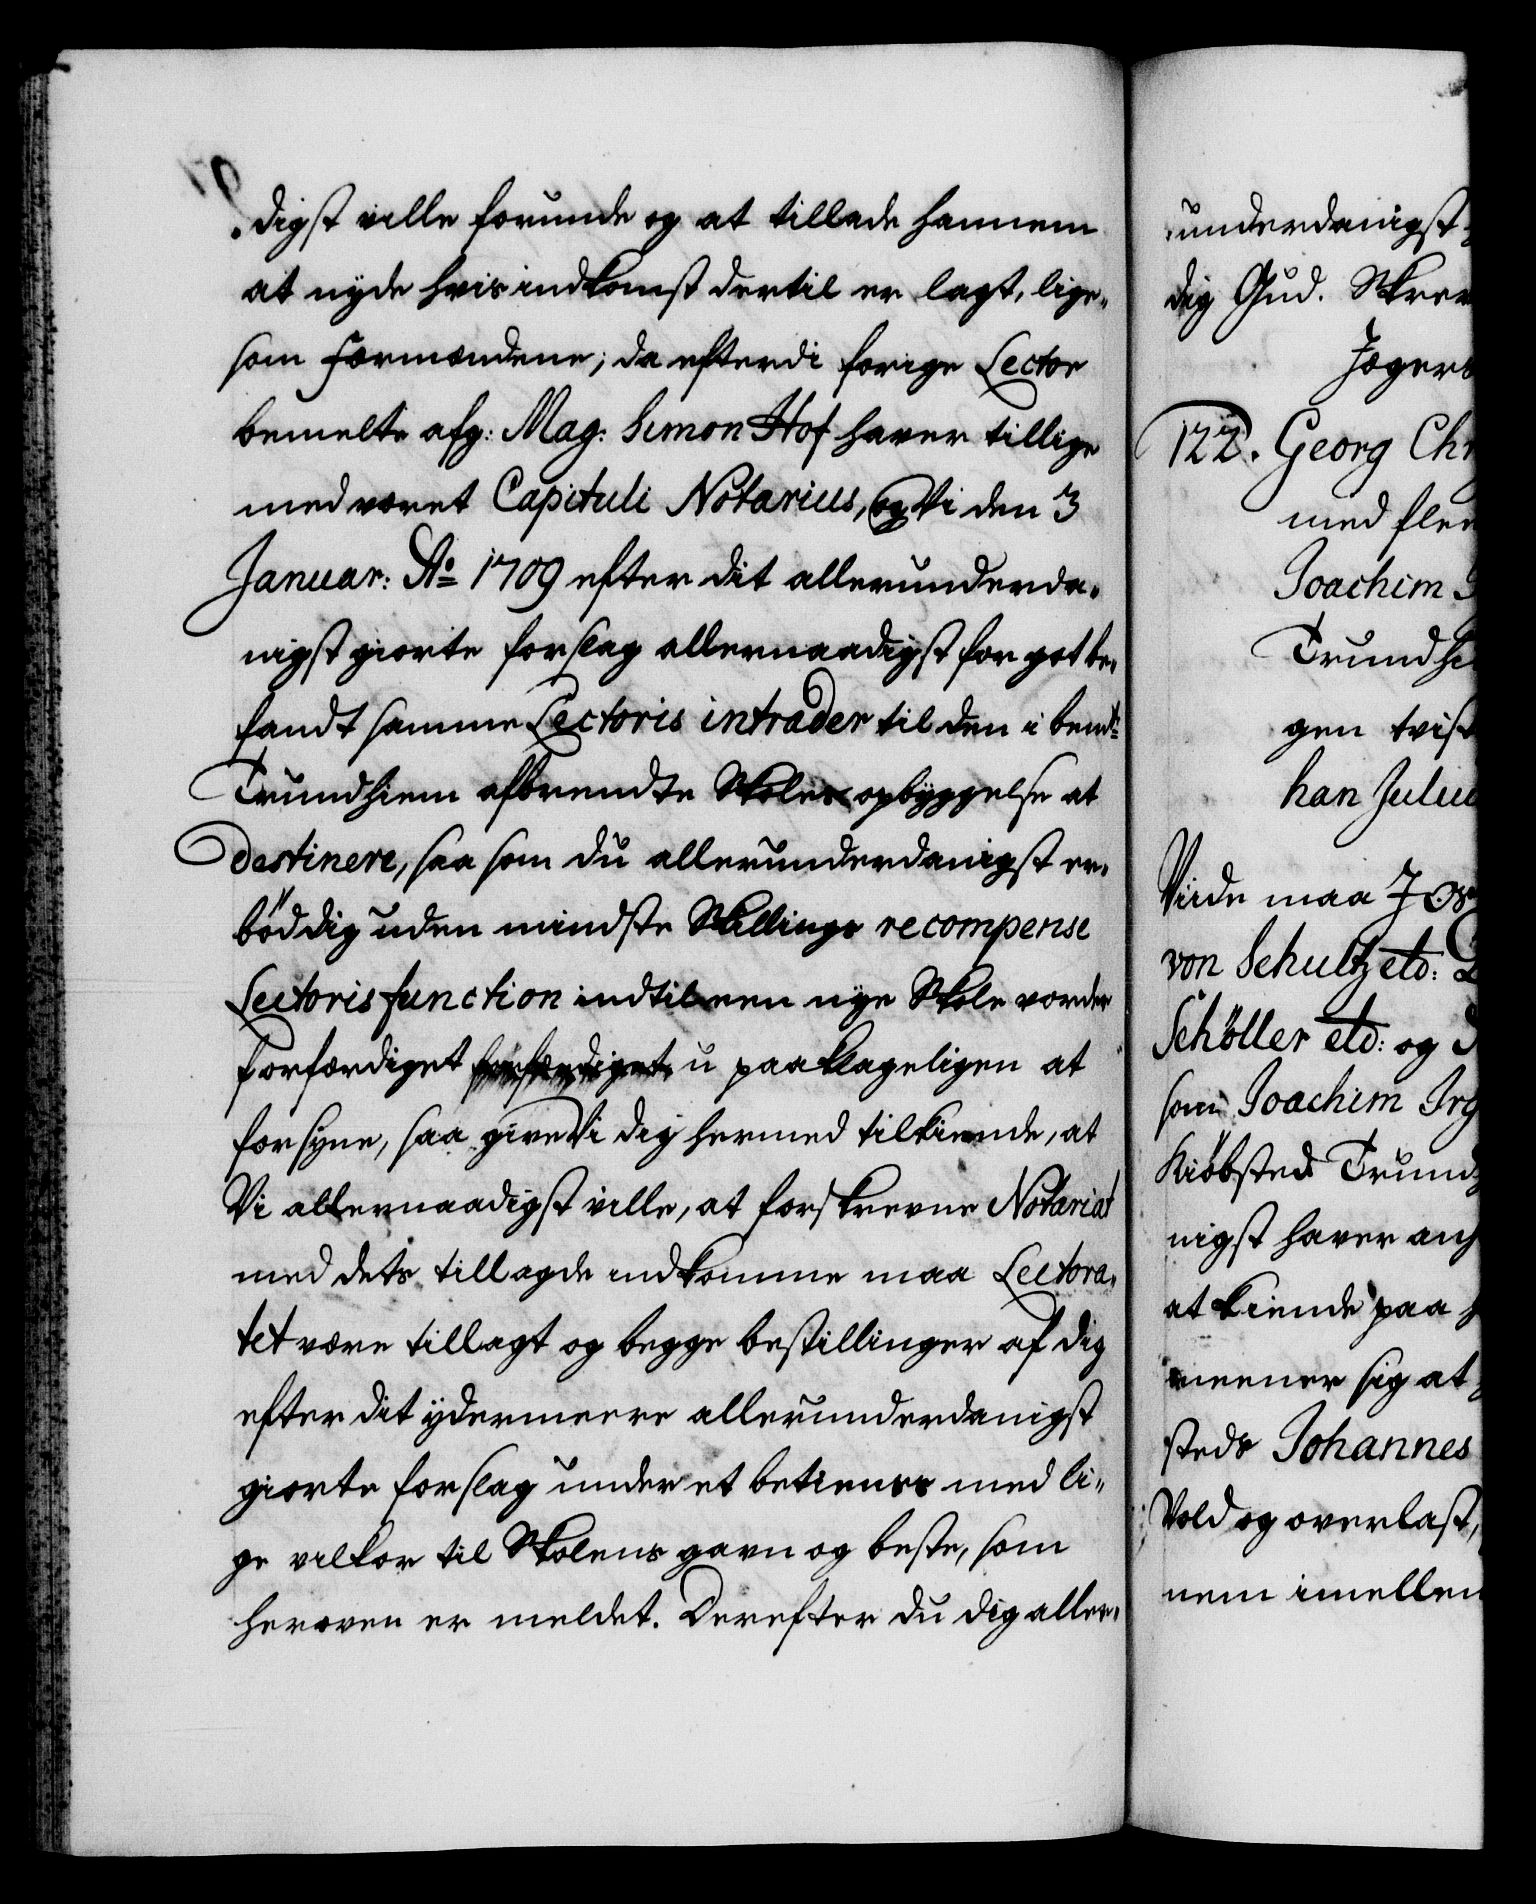 digst ville forunde og at tillade hannem
at nyde hvis indkomst dertil er lagt, lige-
som Formændene; da efterdi forige Lector
bemelte afg: Mag: Simon Hof haver tillige
med været Capituli Notarius, og Vi den 3
Januar: Ao 1709 efter dit allerunderda-
nigst giorte forslag allernaadigst for got be-
fandt samme Lectoris intrader til den i bemte
Trundhiem afbrendte Skoles opbyggelse at
destinere, saa som du allerunderdanigst er-
bød dig uden mindste Skillings recompense
Lectoris function indtil een nye Skole vorder
forfærdiget forfærdiget u paaklageligen at
forsyne, saa give Vi dig hermed tilkiende, at
Vi allernaadigst ville, at forskrevne Notariat
med dets tillagde indkomme maa Lectora-
tet være tillagt og begge bestillinger af dig
efter dit ydermeere allerunderdanigst
giorte forslag under et betienes med li-
ge vilkor til Skolens gavn og beste, som
heroven er meldet. Derefter du dig aller-
underdanigst
dig Gud. Skrev
Jægers
122. Georg Chr
med fleer
Joachim
Trundhi
gen tvist
han Juliu
Vide maa
von Schultz etc:
Schöller etc: og
som Joachim Irg
Kiöbsted Trund
nigst haver an
at kiende paa
meener sig at
steds Johannes
Vold og overlast,
nem imellem